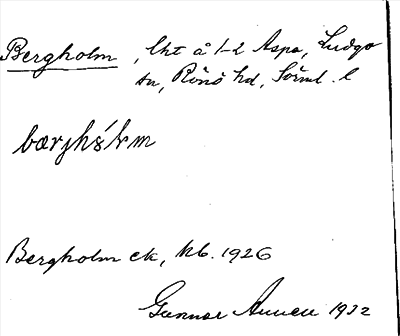 Bergholm, lht å 1-2 Aspa, Ludgo
sn, Rönö hd, Sörml. l
Bergholm ek, Kb. 1926
Gunnar 1932